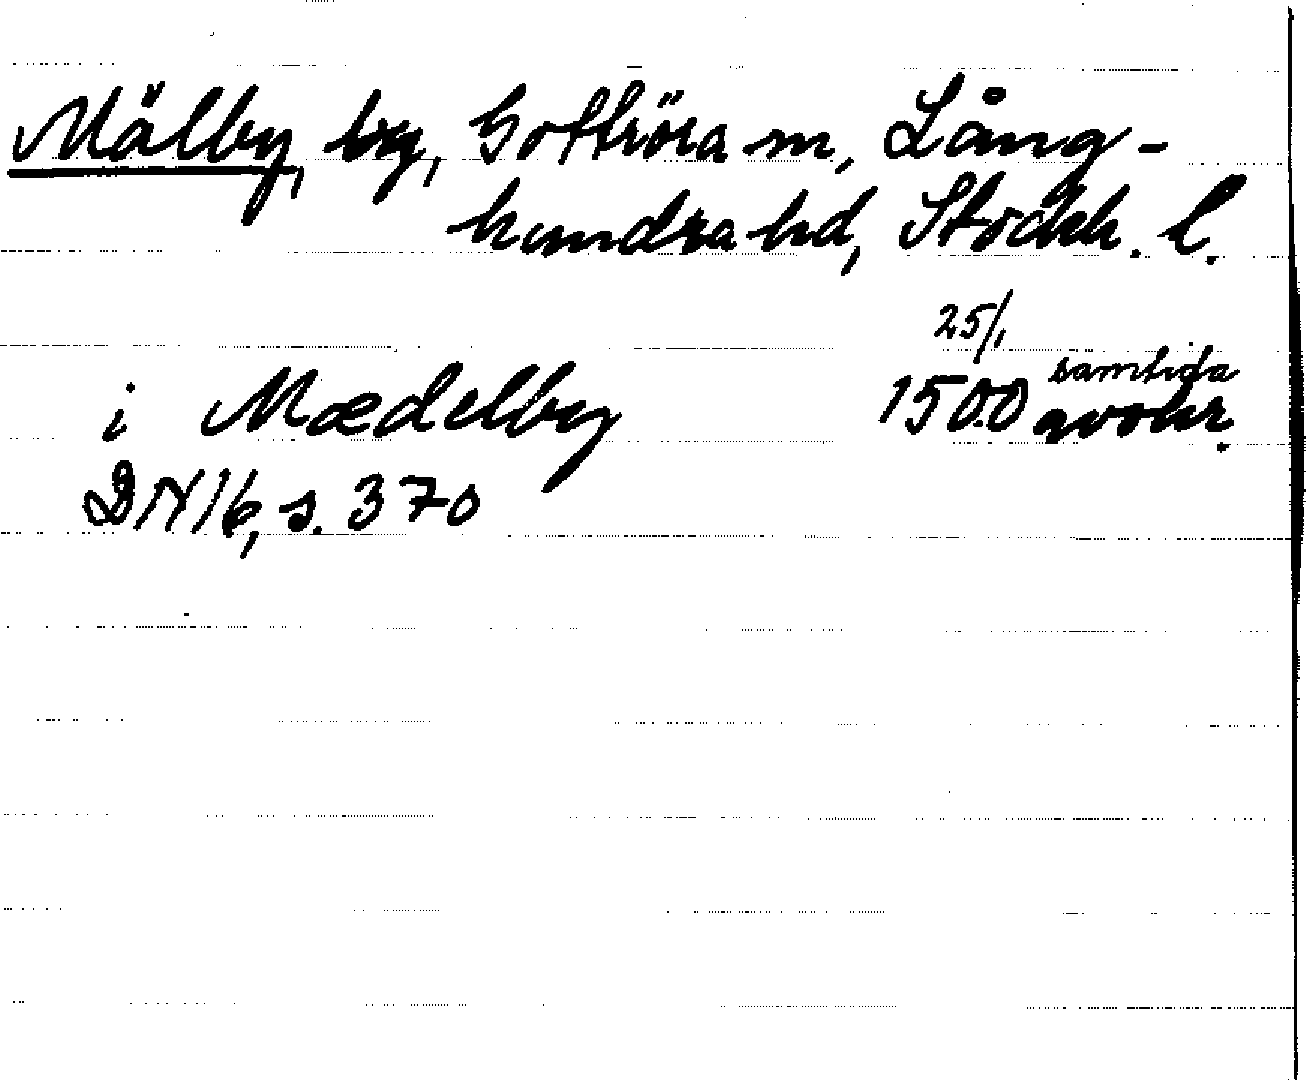 Mälby, by, Gottröra sn, Lång-
hundra hd, Stockh. l.
25/1
i Mædelby 1500 samtida
avskr.
DN 16, s. 370